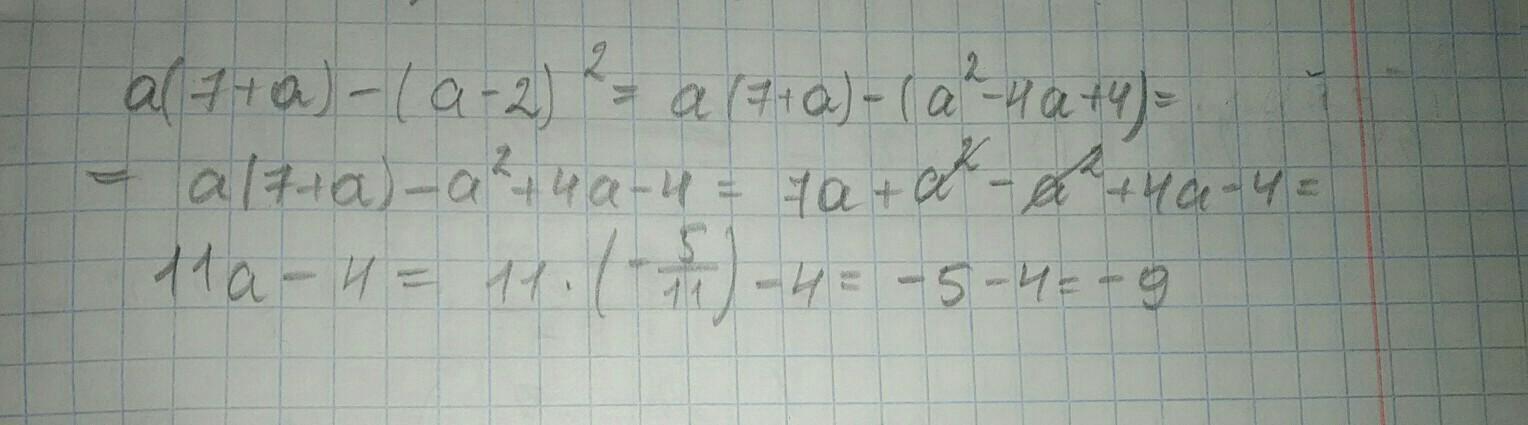 a(7+a)-(a-2)²= a(7+a)-(a²-4a+4)=
= a(7+a)-a²+4a-4= 7a+a²-a²+4a-4=
11a-4= 11·(-5/11)-4= -5-4=-9